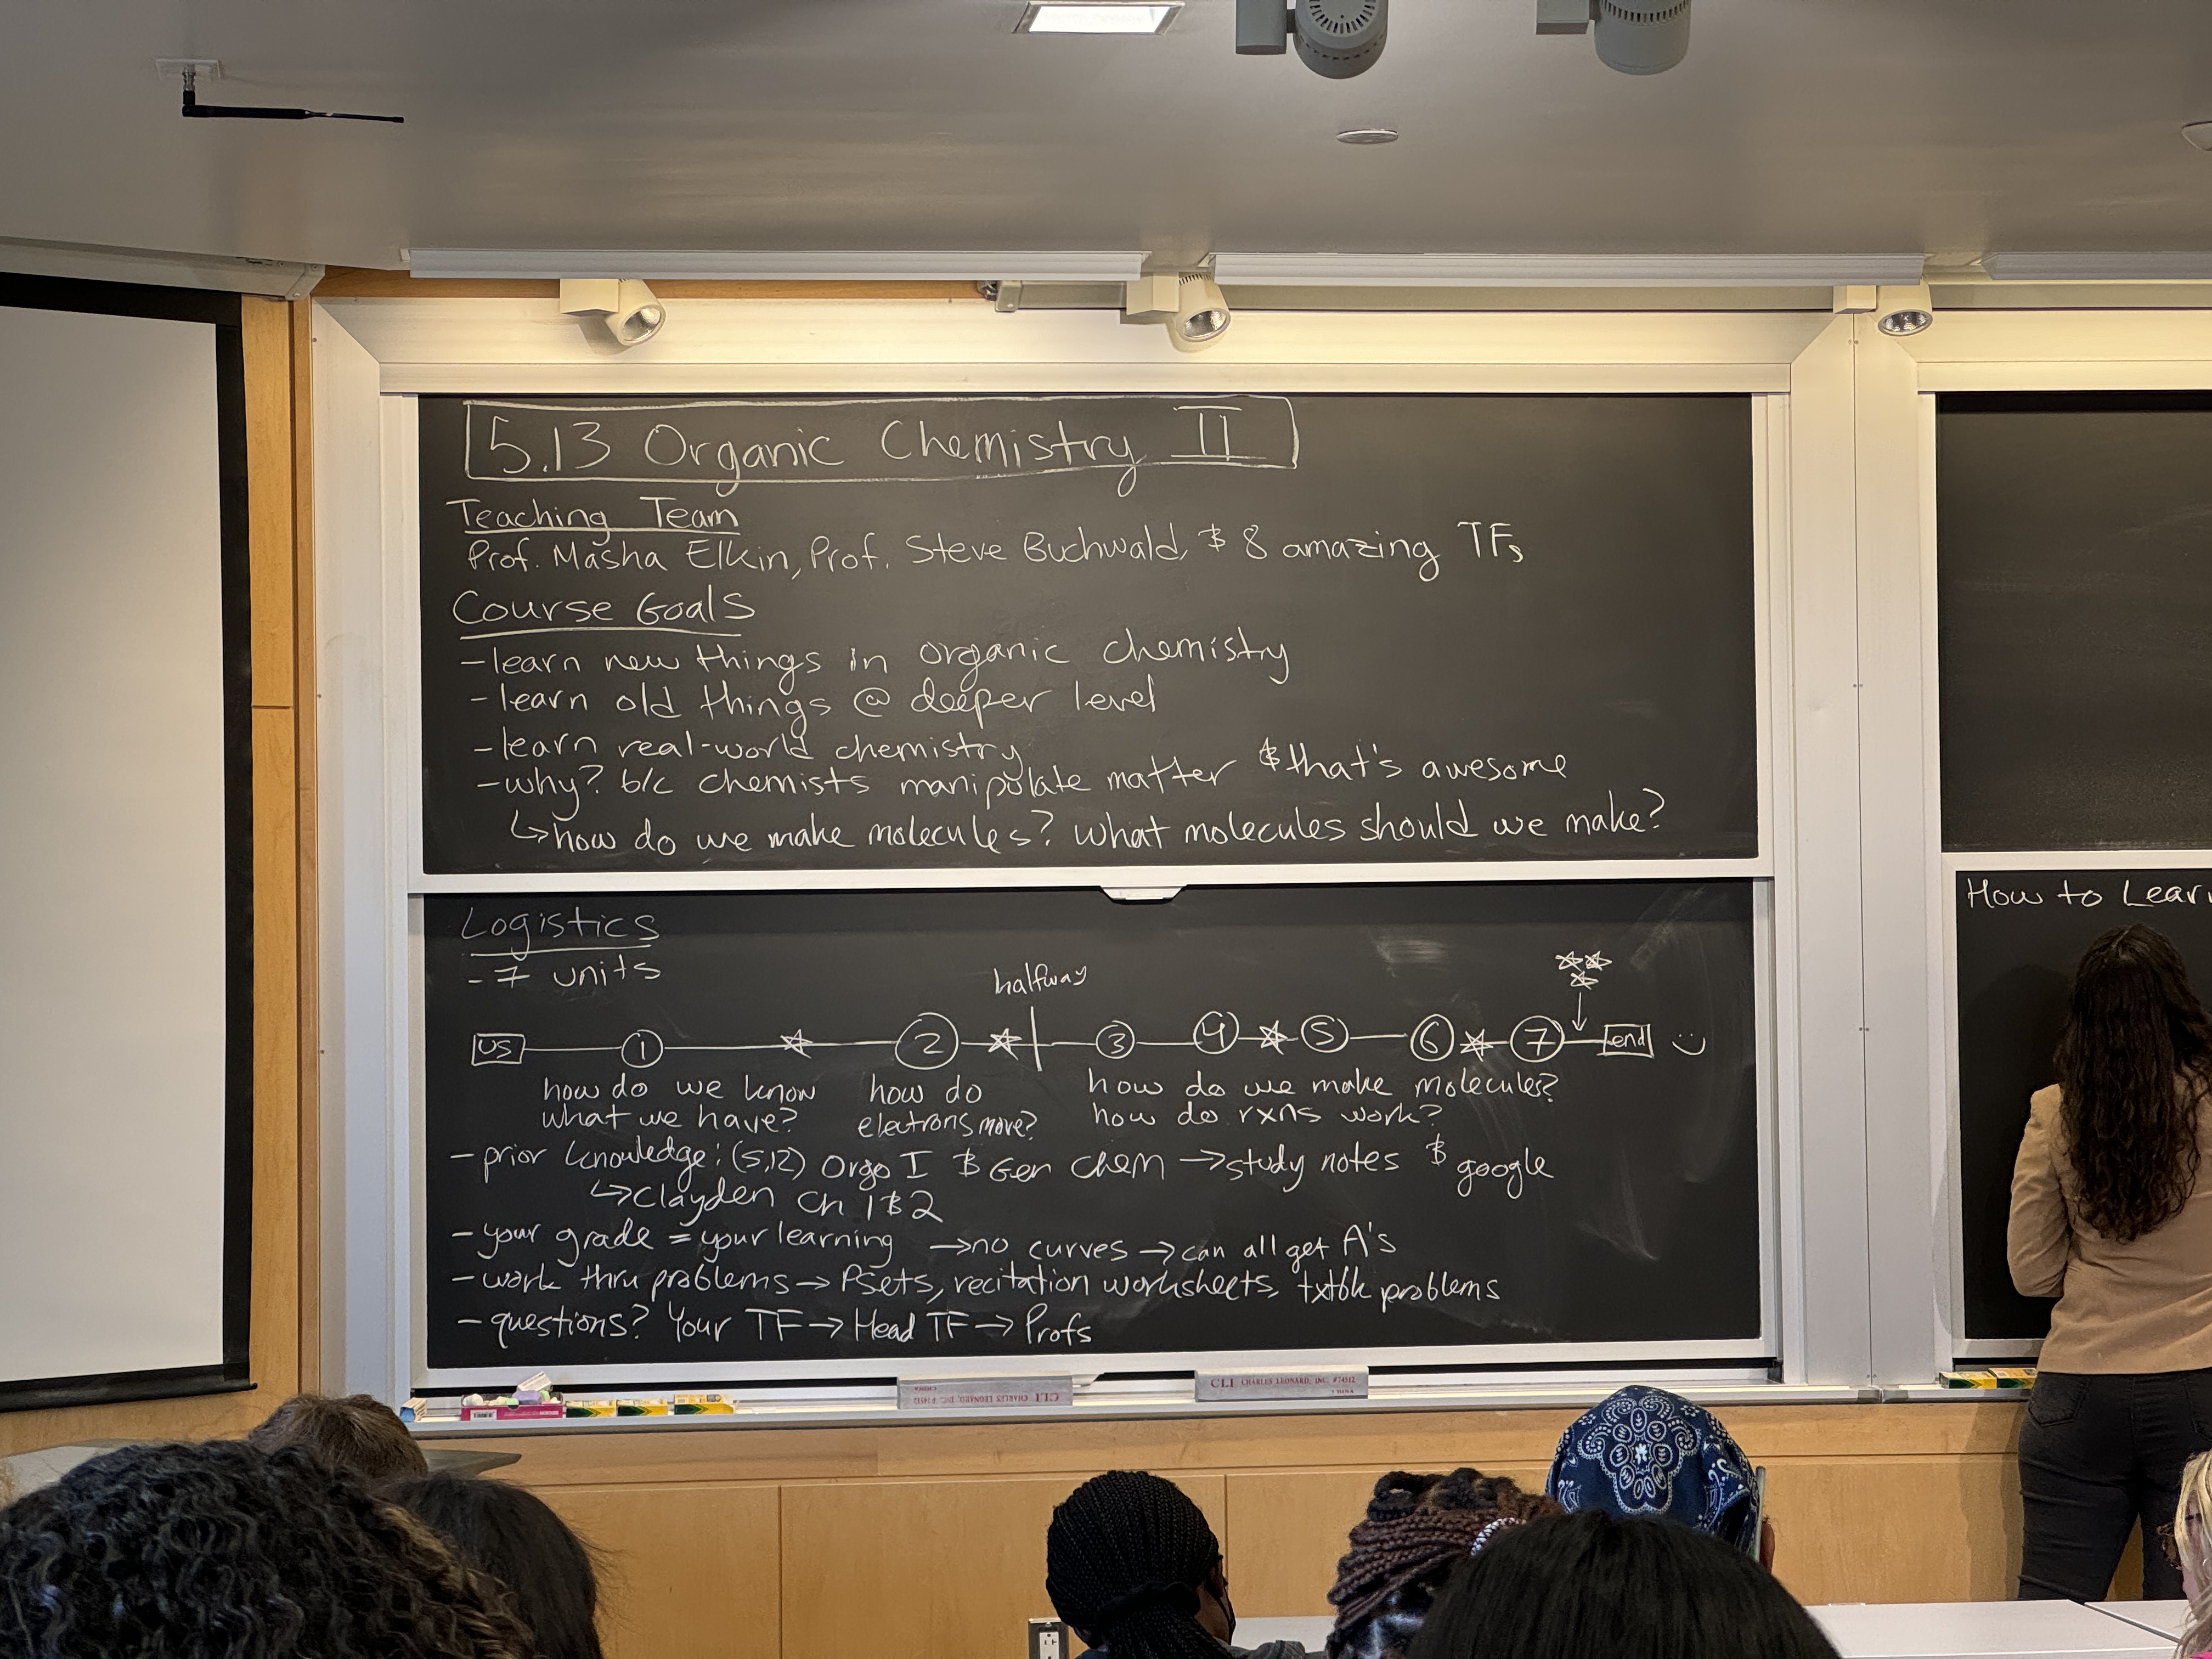 5.13 Organic Chemistry II
Teaching Team
Prof. Masha Elkin, Prof. Steve Buchwald, & 8 amazing TFs
Course Goals
- learn new things in organic chemistry
- learn old things @ deeper level
- learn real-world chemistry
- why? b/c chemists manipulate matter & that's awesome
↳ how do we make molecules? what molecules should we make?
Logistics
- 7 units
halfway
US 1 2 3 4 5 6 7 end
how do we know
what we have?
how do
electrons move?
how do we make molecules?
how do rxns work?
- prior knowledge: (5.12) Orgo I & Gen Chem → study notes & google
↳ Clayden Ch 1 & 2
- your grade = your learning → no curves → can all get A's
- work thru problems → Psets, recitation worksheets, txtbk problems
- questions? Your TF → Head TF → Profs
How to Lear
CLI CHARLES LEONARD, INC. #74542
CLI CHARLES LEONARD, INC.